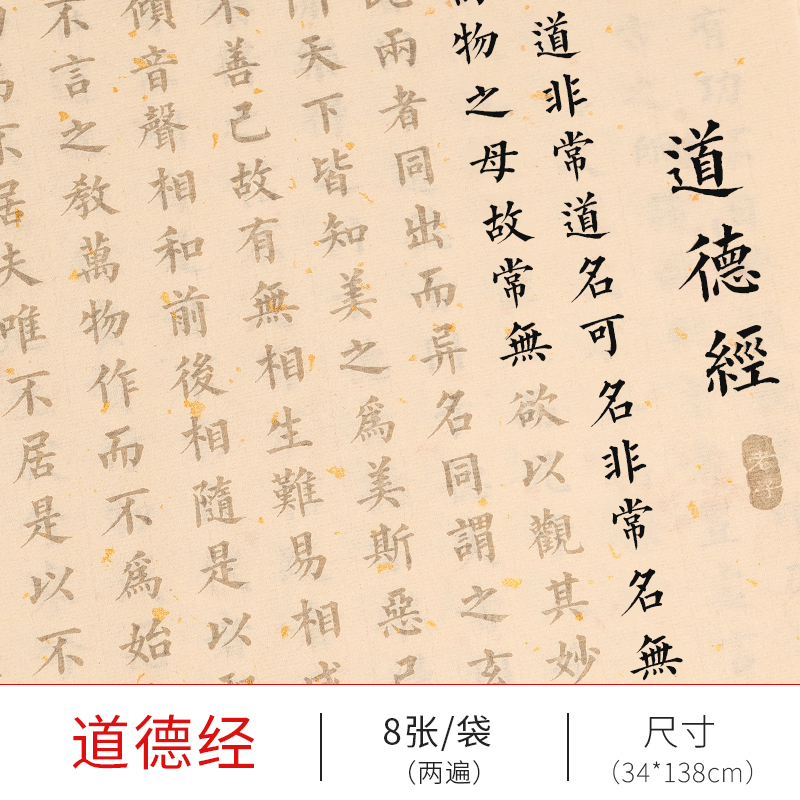 道德經
老子
道非常道名可名非常名無
物之母故常無欲以觀其妙
兩者同出而异名同謂之玄
天下皆知美之爲美斯惡已
不善已故有無相生難易相成
傾音聲相和前後相隨是以
不言之教萬物作而不爲始
不居夫唯不居是以不
道德经
8张/袋
(两遍)
尺寸
(34*138cm)